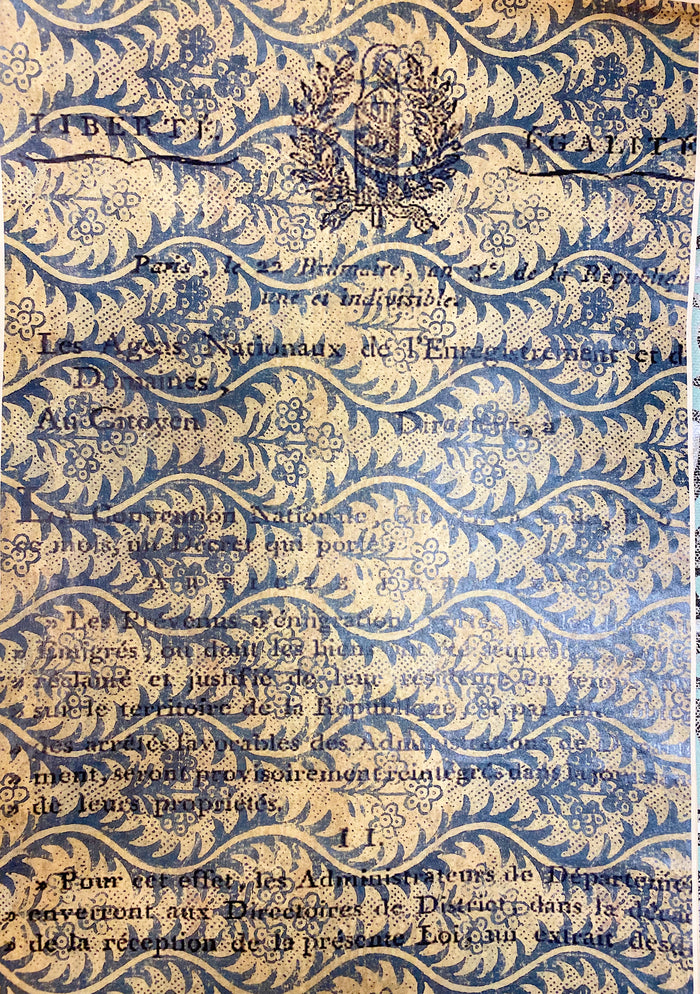 LIBERTÉ. ÉGALITÉ
Paris, le 22 Brumaire, an 3.e de la Républi
une et indivisible.
Les Agens Nationaux de l'Enregistrement et d
Domaines,
Au Citoyen Directeur, à
LA Convention Nationale, Citoyen, a rendu, le
mois, un Décret qui porte:
ARTICLE PREMIER
» Les Prévenus d'émigration, portés sur les
émigrés, ou dont les biens ont été séquestrés
» réclamé et justifié de leur résidence en temps
» sur le territoire de la République et par
» des arrêtés favorables des Administrations de D
» ment, seront provisoirement réintégrés dans la jouissan
» de leurs propriétés.
II.
» Pour cet effet, les Administrateurs de Départeme
» enverront aux Directoires de District, dans la décad
» de la réception de la présente Loi, un extrait desd